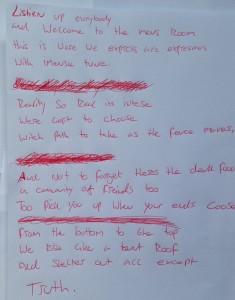 Listen up everybody
and Welcome to the movs Room
this is Were we express are expresion
With imause tune.
Reality So Real its intese
Were capt to choose
Witch path to take as the force moves,
And Not to forget theres the death food
a comunity of friends too
Too Pick you up When your ends loose
From the bottom to the top
We Rise Like a tent Roof
And Shelter out all except
Truth.